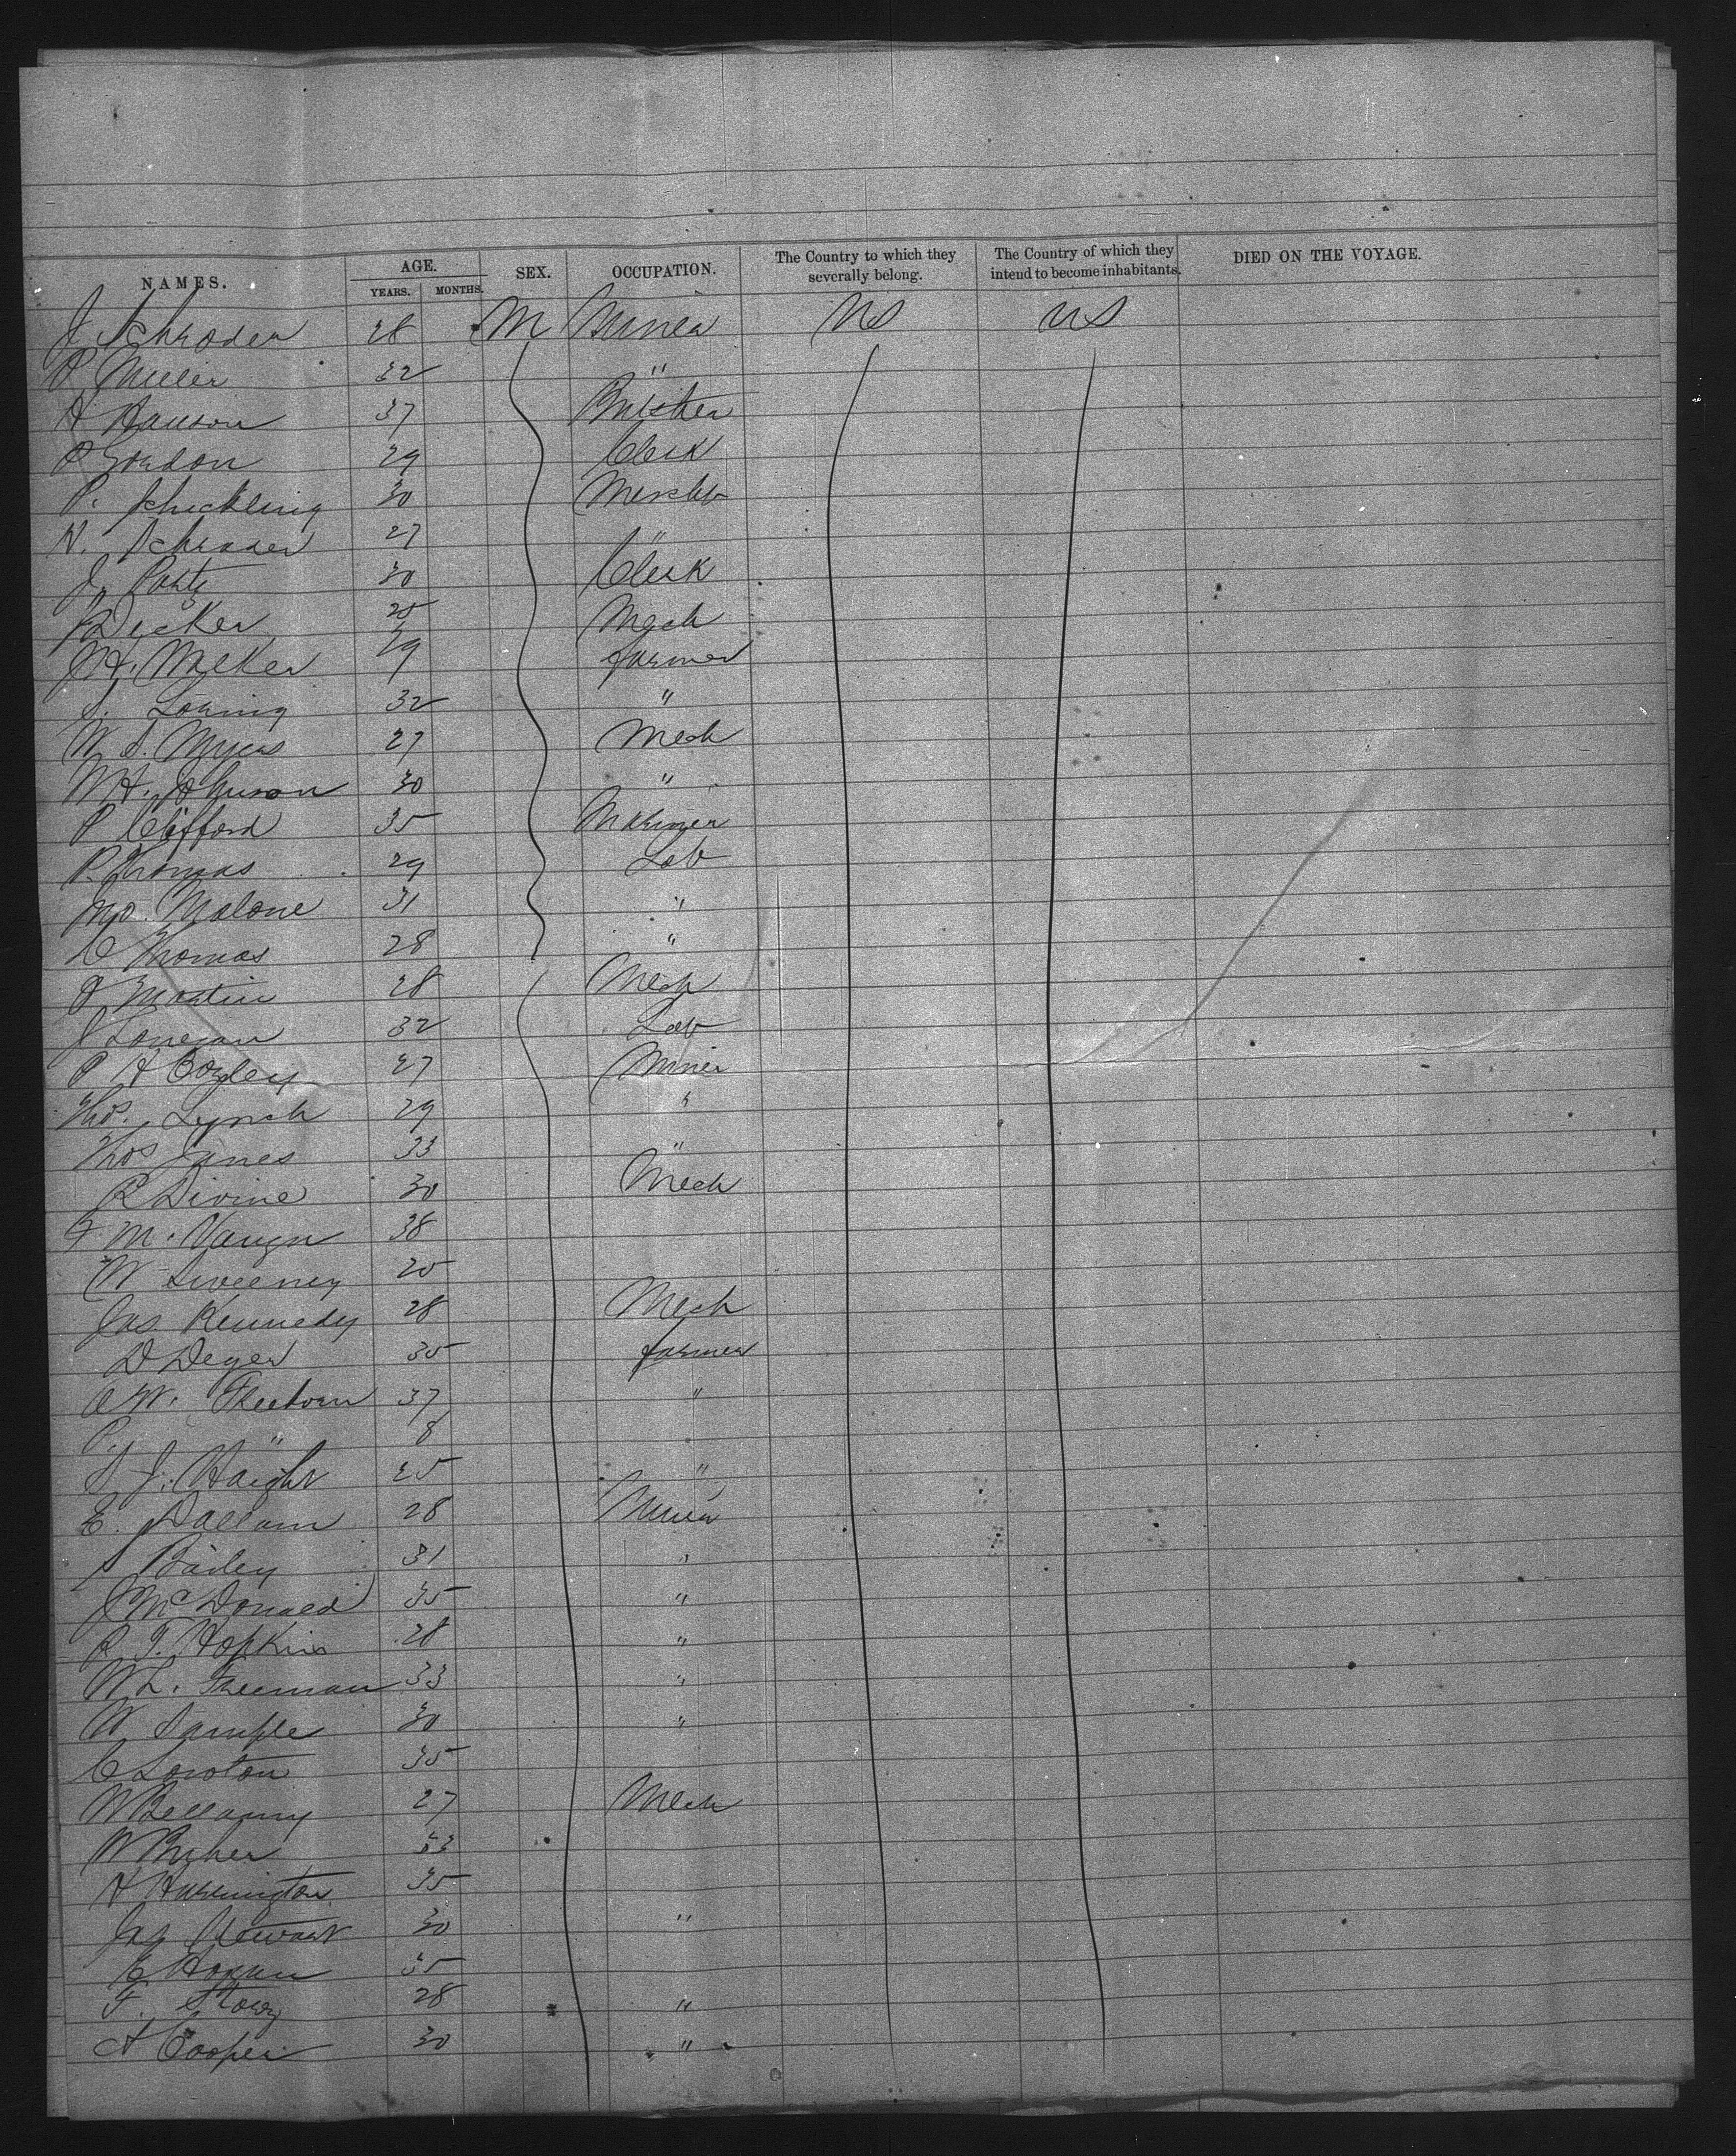 NAMES. AGE. SEX. OCCUPATION. The Country to which they severally belong. The Country of which they intend to become inhabitants. DIED ON THE VOYAGE.
YEARS. MONTHS.
J Schroder 28 M Miner US US
P Miller 32 "
H Hanson 37 Butcher
P Gordon 29 Clerk
P. Schickling 30 Mercht
N. Schroder 27 "
J. 30 Clerk
J Decker 25 Mech
J H. Walker 29 farmer
S. Loring 32 "
W. S. Myers 27 Mech
W H. Johnson 30 "
P Clifford 35 Mariner
P. Thomas 29 Lab
Jno. Malone 31 "
C Thomas 28 "
J Martin 28 Mech
J Lonegan 32 Lab
P H Cogley 27 Miner
Thos. Lynch 29 "
Thos Janes 33 "
R Divine 30 Mech
F. M. Vaugn 38
W Sweeney 20
Jas Kennedy 28 Mech
D Deyer 35 farmer
A W. Freeborn 37 "
P. " 8 "
S J. Haight 25 "
E. Dallam 28 Miner
S Bailey 31 "
J McDonald 35 "
R. J. Hopkins 28 "
W L. Freeman 33 "
W Sample 30 "
C Lowton 35
W Bellamy 27 Mech
W 33
H Harrington 35
Jas Stewart 30 "
C Hogan 35
F. Story 28 "
A Cooper 30 "